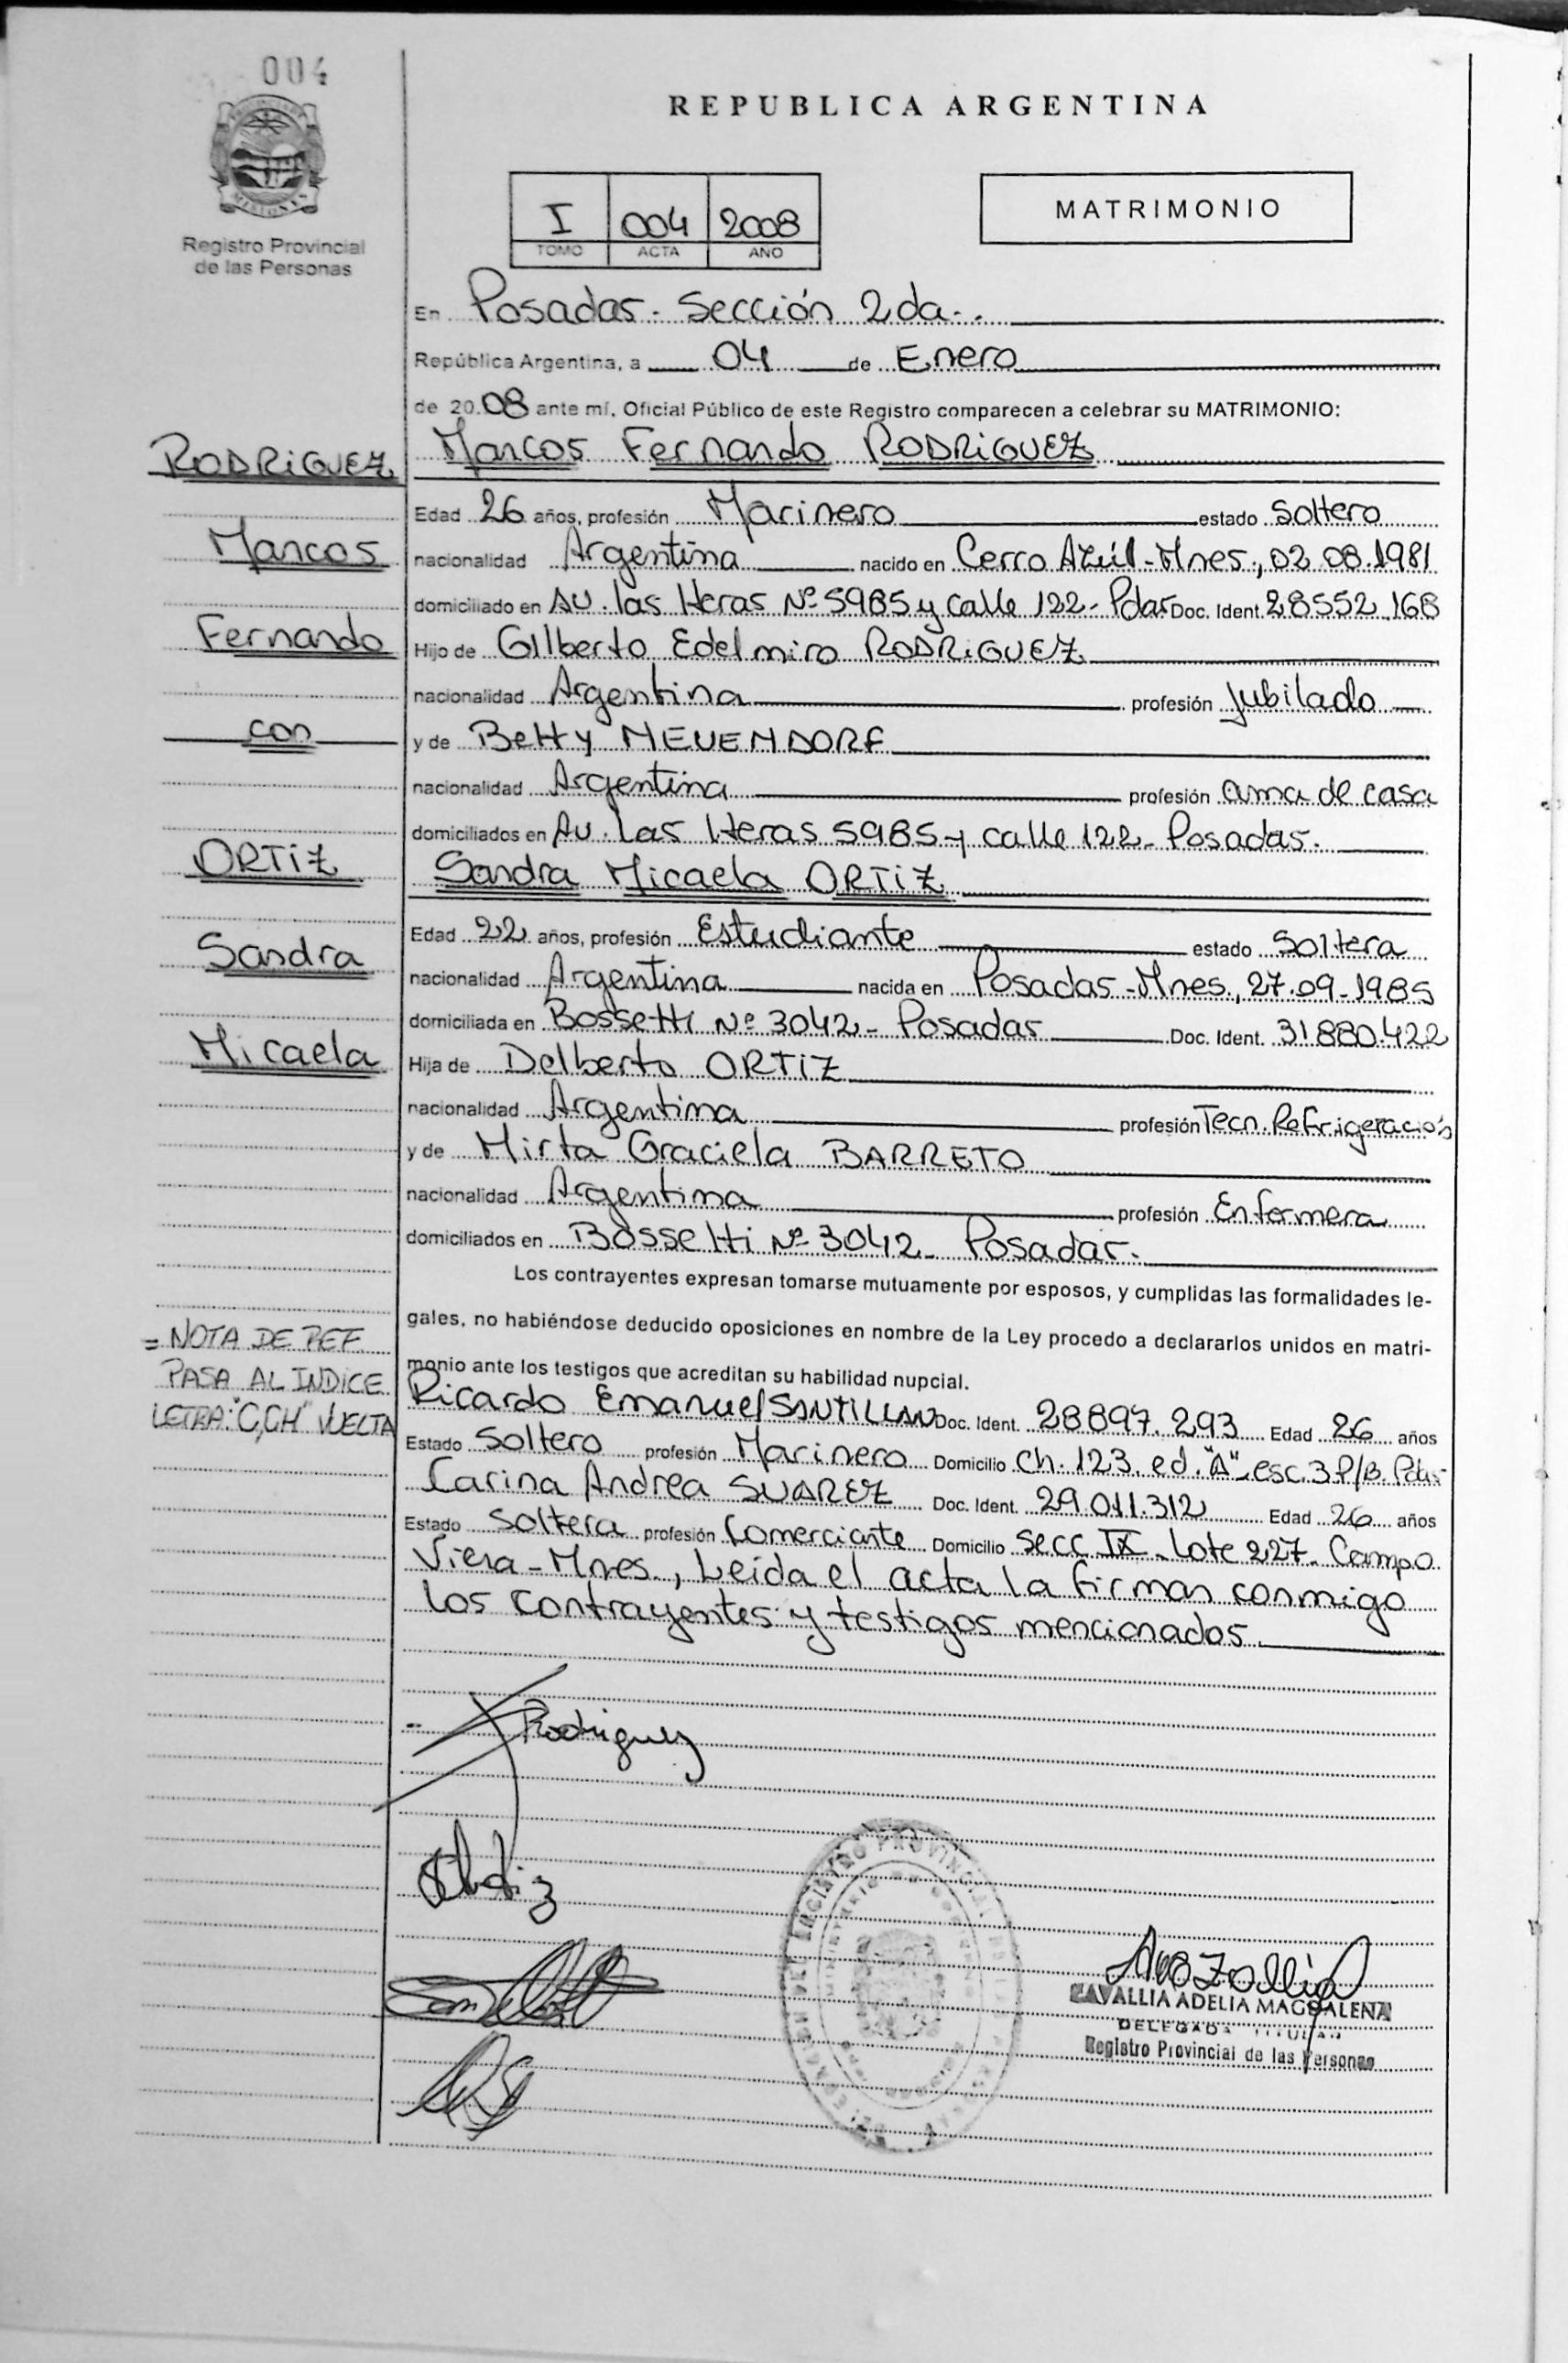 004
REPUBLICA ARGENTINA
I 004 2008
TOMO ACTA AÑO
MATRIMONIO
Registro Provincial
de las Personas
En Posadas - Sección 2da.
República Argentina, a 04 de Enero
de 2008 ante mí, Oficial Público de este Registro comparecen a celebrar su MATRIMONIO:
RODRIGUEZ
Marcos Fernando RODRIGUEZ
Edad 26 años, profesión Marinero estado Soltero
Marcos
nacionalidad Argentina nacido en Cerro Azúl - Mnes., 02.08.1981
domiciliado en Av. las Heras Nº 5985 y calle 122 - Pdas Doc. Ident. 28552.168
Fernando
Hijo de Gilberto Edelmiro RODRIGUEZ
nacionalidad Argentina profesión Jubilado
con
y de Betty NEUENDORF
nacionalidad Argentina profesión ama de casa
domiciliados en Av. Las Heras 5985 y calle 122 - Posadas.
ORTIZ
Sandra Micaela ORTIZ
Edad 22 años, profesión Estudiante estado Soltera
Sandra
nacionalidad Argentina nacida en Posadas - Mnes., 27.09-1985
domiciliada en Bossetti Nº 3042 - Posadas Doc. Ident. 31880.422
Micaela
Hija de Delberto ORTIZ
nacionalidad Argentina profesión Tecn. Refrigeración
y de Mirta Graciela BARRETO
nacionalidad Argentina profesión Enfermera
domiciliados en Bossetti Nº 3042 - Posadas.
Los contrayentes expresan tomarse mutuamente por esposos, y cumplidas las formalidades le-
gales, no habiéndose deducido oposiciones en nombre de la Ley procedo a declararlos unidos en matri-
monio ante los testigos que acreditan su habilidad nupcial.
= NOTA DE REF.
PASA AL INDICE
LETRA: "C, CH" VUELTA
Ricardo Emanuel SANTILLAN Doc. Ident. 28897.293 Edad 26 años
Estado Soltero profesión Marinero Domicilio Ch. 123 ed. "A" - esc. 3 P/B. Pdas
Carina Andrea SUAREZ Doc. Ident. 29.011.312 Edad 26 años
Estado Soltera profesión Comerciante Domicilio Secc. IX - Lote 227 - Campo
Viera - Mnes., Leída el acta la firman conmigo
los contrayentes y testigos mencionados.
Rodriguez
ZAVALLIA ADELIA MAGDALENA
DELEGADA TITULAR
Registro Provincial de las Personas